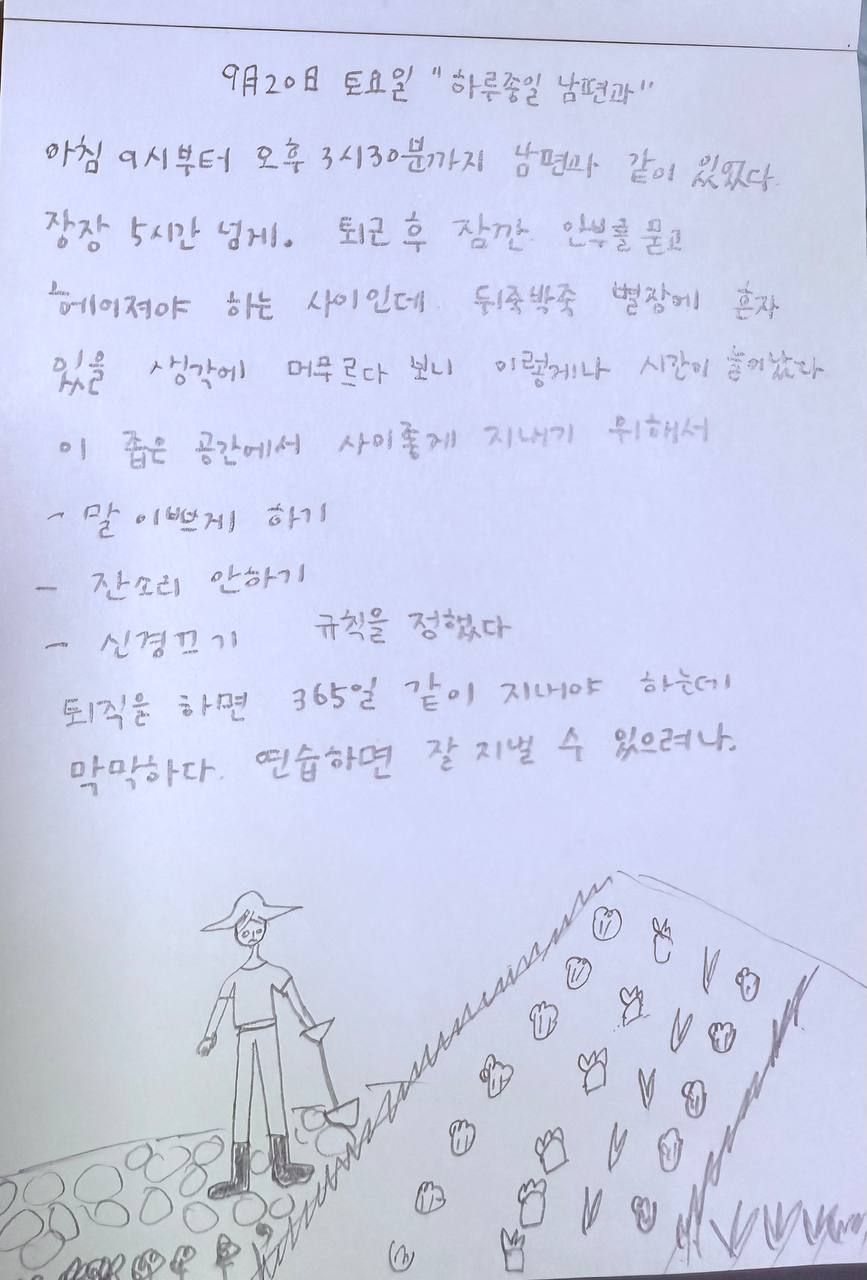 9月20日 토요일 "하루종일 남편과"
아침 9시부터 오후 3시30분까지 남편과 같이 있었다.
장장 5시간 넘게. 퇴근 후 잠깐 안부를 묻고
헤어져야 하는 사이인데 뒤죽박죽 별장에 혼자
있을 생각에 머무르다 보니 이렇게나 시간이 늘어났다
이 좁은 공간에서 사이좋게 지내기 위해서
- 말 이쁘게 하기
- 잔소리 안하기
- 신경끄기 규칙을 정했다
퇴직을 하면 365일 같이 지내야 하는데
막막하다. 연습하면 잘 지낼 수 있으려나.